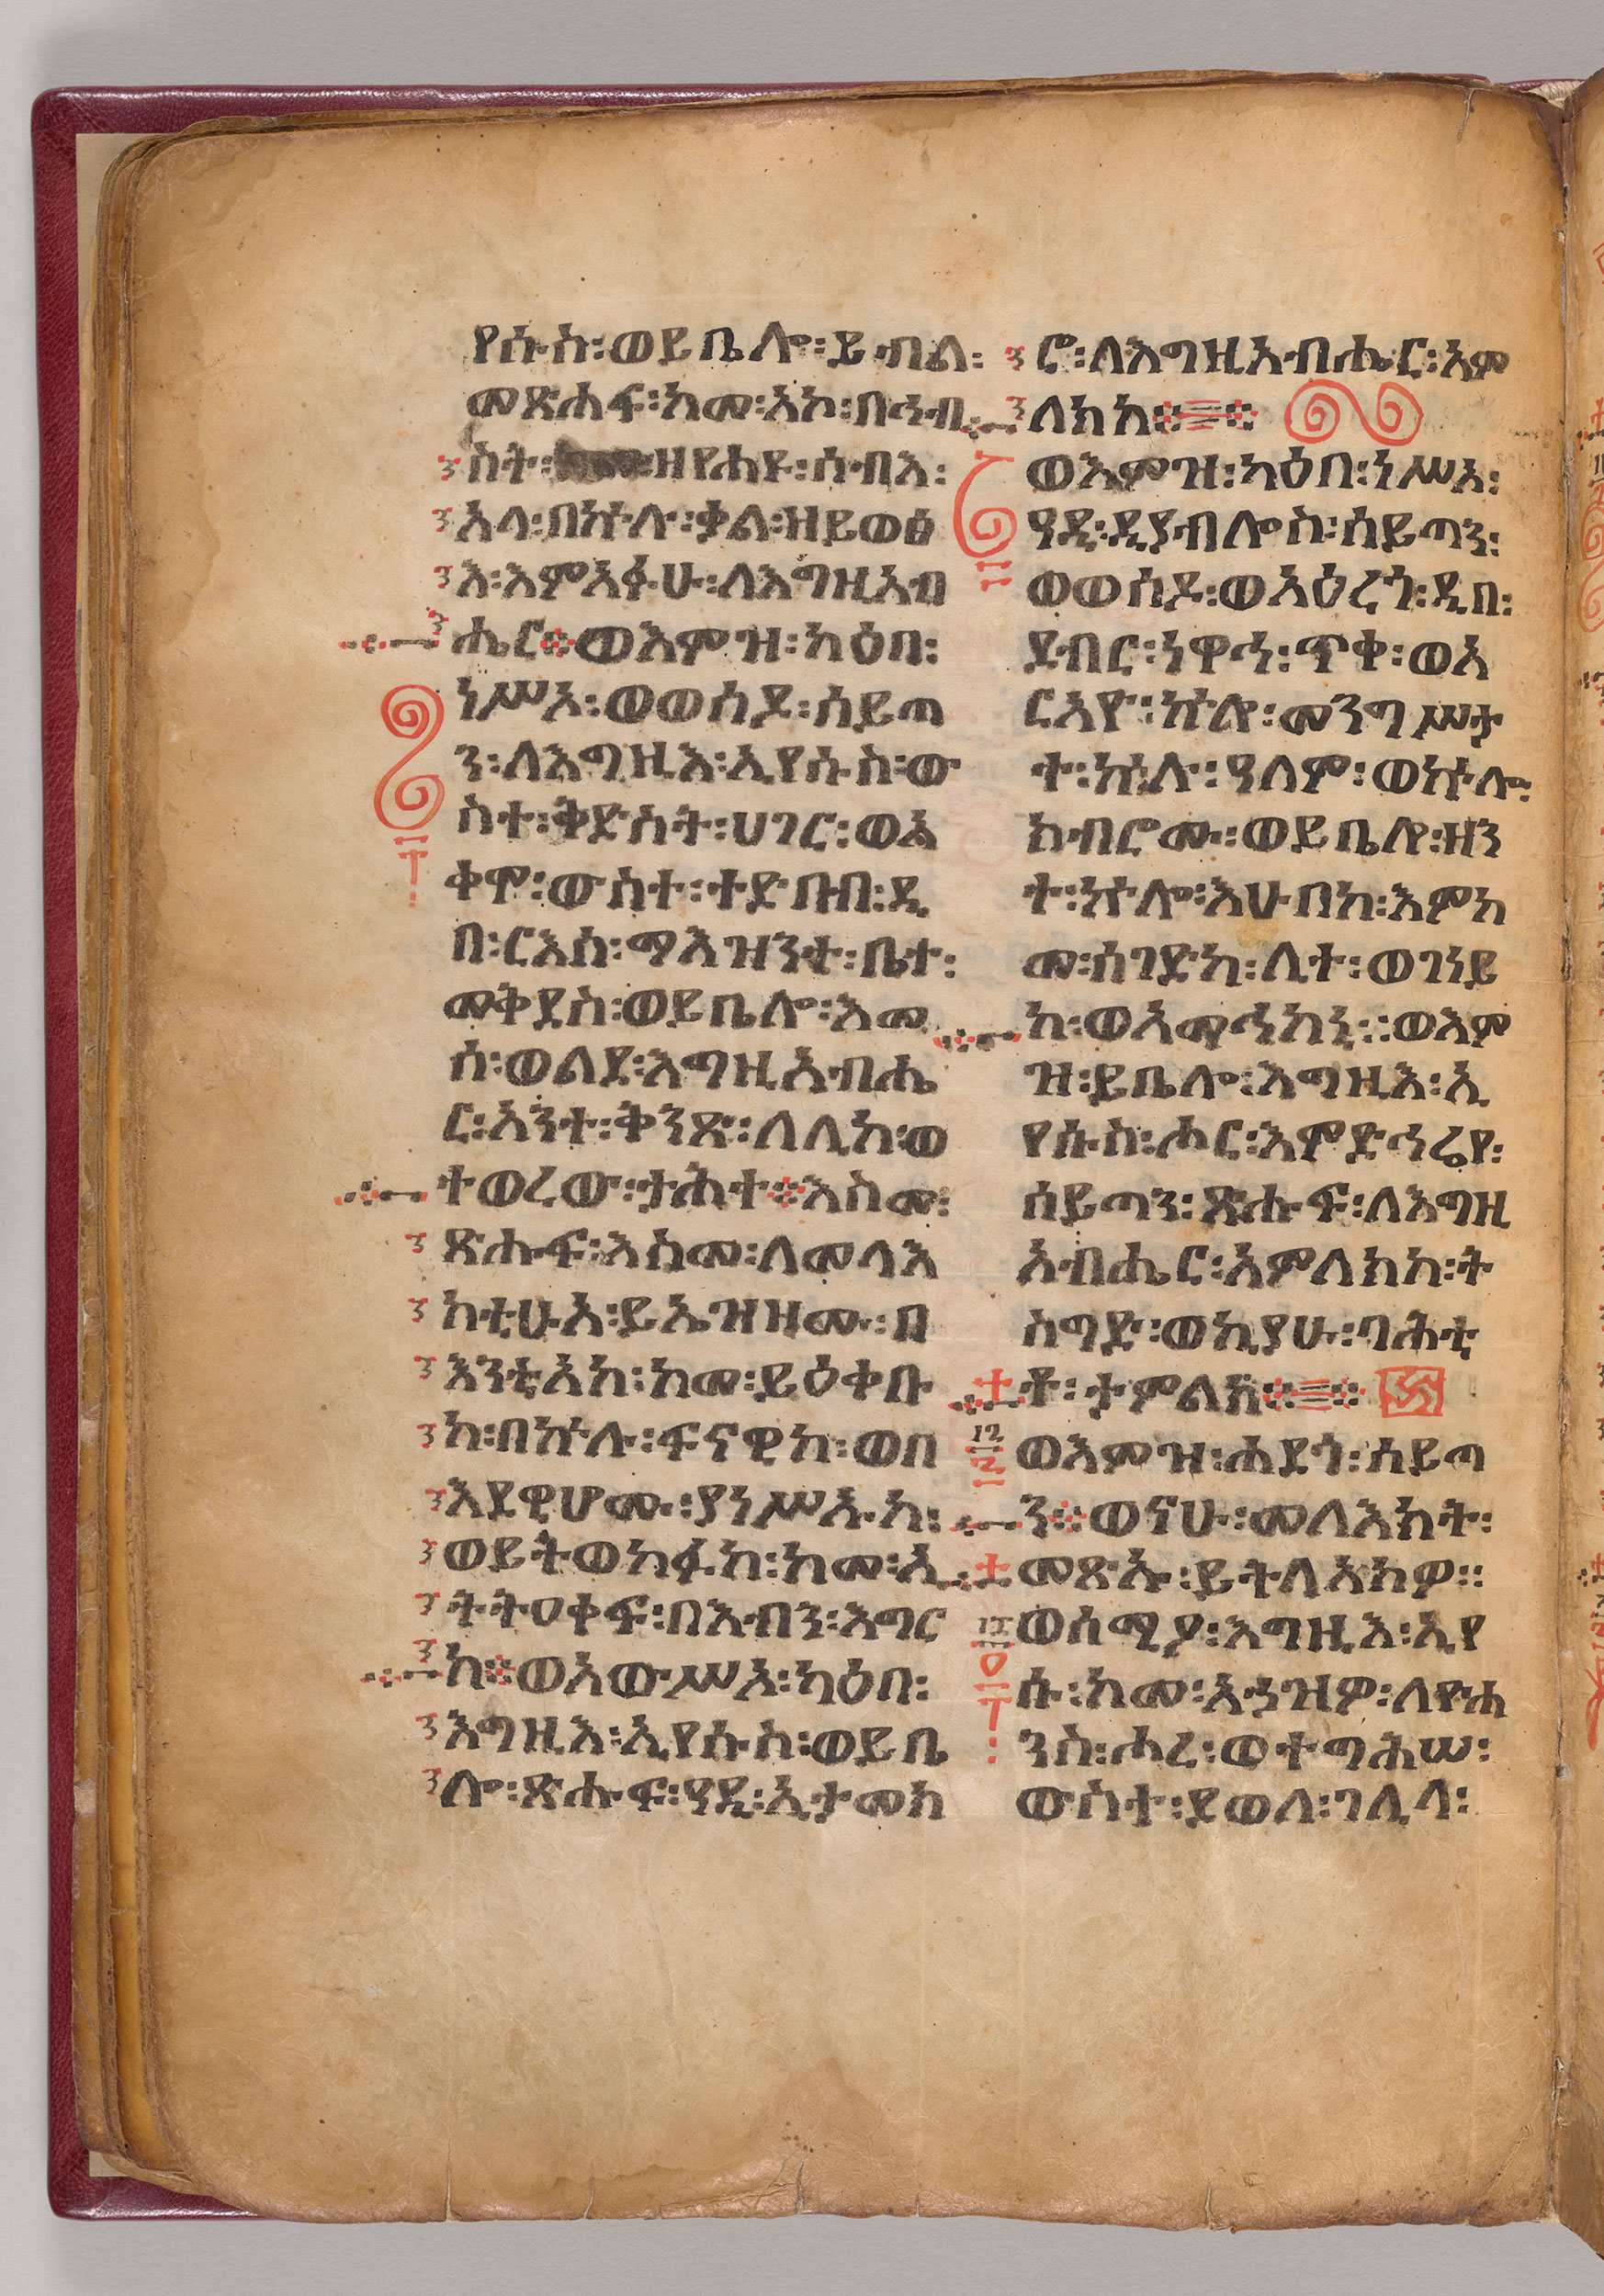 የሱስ፡ወይቤሎ፡ይብል፡
መጽሐፍ፡ከመ፡አኮ፡በኅብ
ስት፡ዘየሐዩ፡ሰብእ፡
አላ፡በኵሉ፡ቃል፡ዘይወፅ
እ፡እምአፉሁ፡ለእግዚአብ
ሔር፨ወእምዝ፡ካዕበ፡
ነሥአ፡ወወሰዶ፡ሰይጣ
ን፡ለእግዚእ፡ኢየሱስ፡ው
ስተ፡ቅድስት፡ሀገር፡ወአ
ቀሞ፡ውስተ፡ተድባበ፡ዲ
በ፡ርእሰ፡ማእዝንተ፡ቤተ፡
መቅደስ፡ወይቤሎ፡እመ
ሰ፡ወልደ፡እግዚአብሔ
ር፡አንተ፡ቅንጽ፡ለሊከ፡ወ
ተወረው፡ታሕተ፨እስመ፡
ጽሑፍ፡እስመ፡ለመላእ
ክቲሁአ፡ይኤዝዞሙ፡በ
እንቲአከ፡ከመ፡ይዕቀቡ
ከ፡በኵሉ፡ፍናዊከ፡ወበ
እደዊሆሙ፡ያነሥኡከ፡
ወይትወከፉከ፡ከመ፡ኢ
ትትዐቀፍ፡በእብን፡እግር
ከ፨ወአውሥአ፡ካዕበ፡
እግዚእ፡ኢየሱስ፡ወይቤ
ሎ፡ጽሑፍ፡ዓዲ፡ኢታመክ
ሮ፡ለእግዚአብሔር፡አም
ላክከ፨፨
ወእምዝ፡ካዕበ፡ነሥአ፡
ዓዲ፡ዲያብሎስ፡ሰይጣን፡
ወወሰዶ፡ወአዕረጎ፡ዲበ፡
ደብር፡ነዋኅ፡ጥቀ፡ወአ
ርአዮ፡ኵሎ፡መንግሥታ
ት፡ኵሉ፡ዓለም፡ወኵሎ፡
ክብሮሙ፡ወይቤሎ፡ዘን
ተ፡ኵሎ፡እሁበከ፡እምከ
መ፡ሰገድከ፡ሊተ፡ወገነይ
ከ፡ወአማኅከኒ፡፡ወእም
ዝ፡ይቤሎ፡እግዚእ፡ኢ
የሱስ፡ሖር፡እምድኅሬየ፡
ሰይጣን፡ጽሑፍ፡ለእግዚ
አብሔር፡አምላክከ፡ት
ስግድ፡ወኪያሁ፡ባሕቲ
ቶ፡ታምልክ፨፨
ወእምዝ፡ሐደጎ፡ሰይጣ
ን፨ወናሁ፡መላእክት፡
መጽኡ፡ይትለአክዎ፡፡
ወሰሚዖ፡እግዚእ፡ኢየ
ሱ፡ከመ፡አኃዝዎ፡ለዮሐ
ንስ፡ሖረ፡ወተግሕሠ፡
ውስተ፡ደወለ፡ገሊላ፡